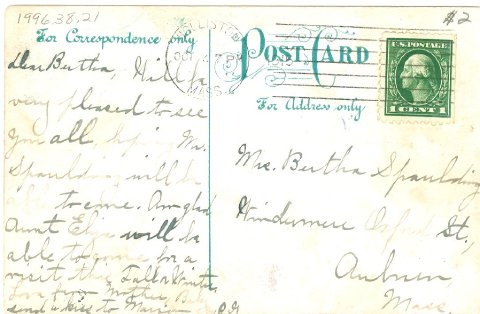 1996.38.21
#2
For Correspondence only
POST CARD
For Address only
MASS.
U.S. POSTAGE
1 CENT 1
Dear Bertha, Will be
very pleased to see
you all, hope Mr.
Spaulding will be
able to come. Am glad
Aunt Eliza will be
able to come for a
visit this Fall or Winter
Love from Mother,
send a kiss to
Mrs. Bertha Spaulding
Windermere Oxford St.,
Auburn,
Mass.